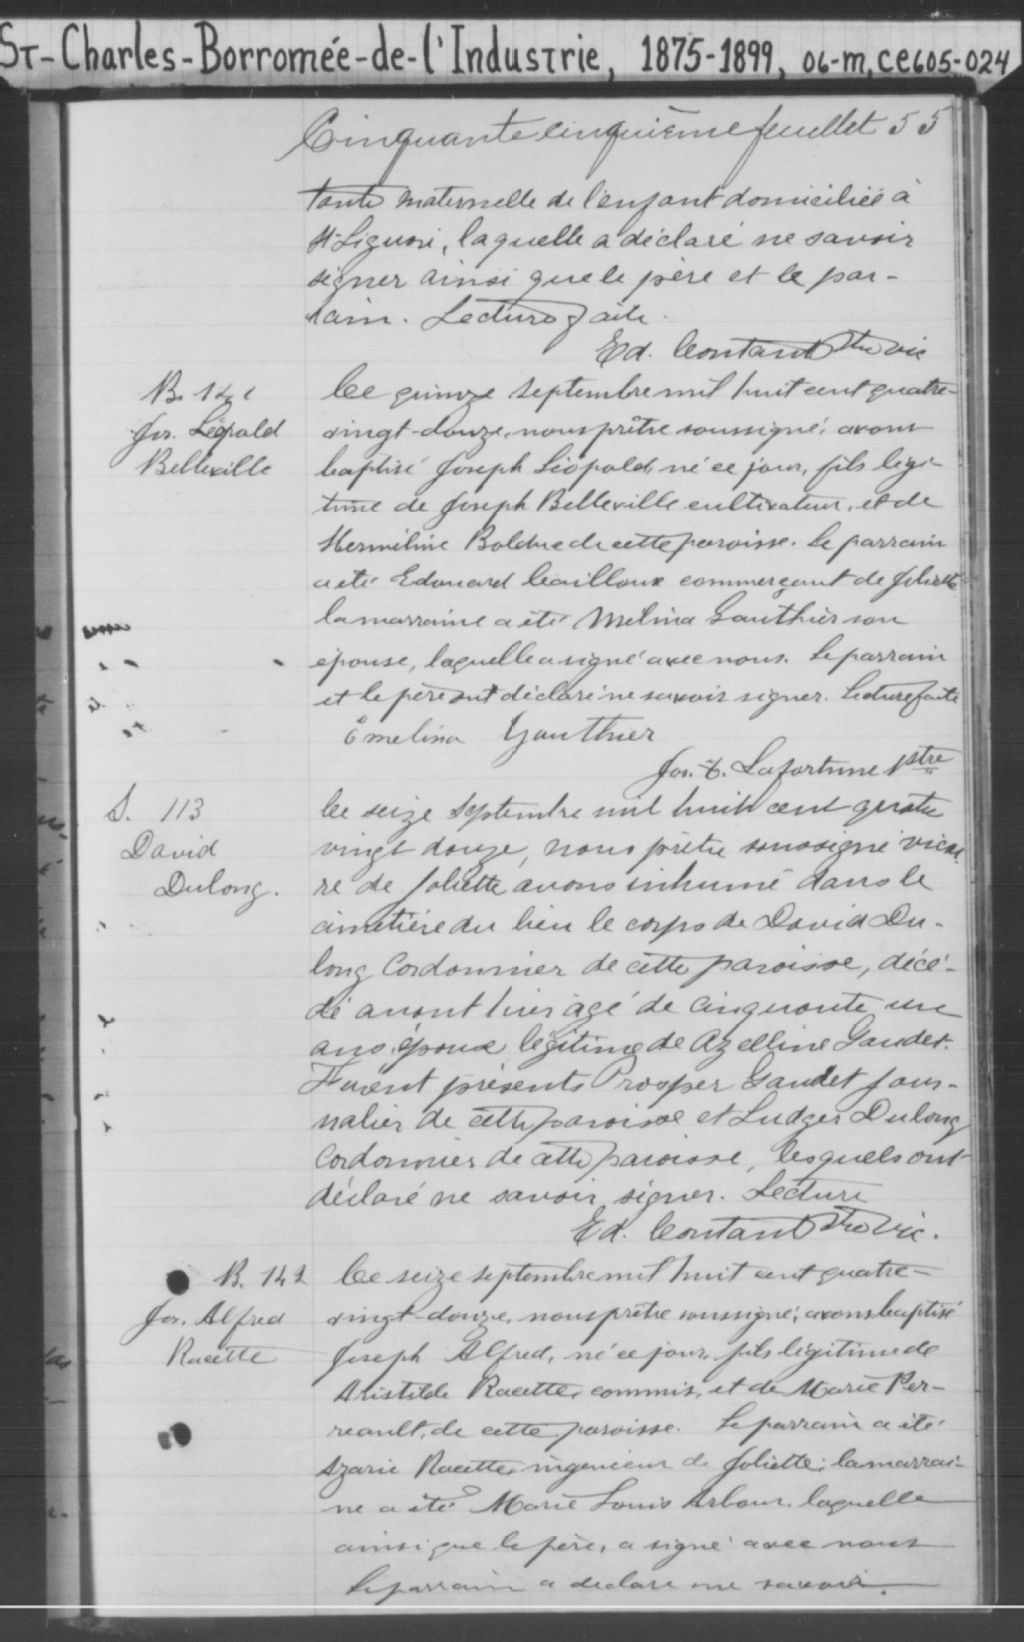 St-Charles-Borromée-de-l'Industrie, 1875-1899, 06-M, CE605-024
Cinquante cinquième feuillet 55
tante maternelle de l'enfant domiciliée à
St-Liguori, laquelle a déclaré ne savoir
signer ainsi que le père et le par-
rain. Lecture faite.
Ed. Contant Ptre vic
B. 141
Jos. Léopold
Belleville
Ce quinze septembre mil huit cent quatre-
vingt-douze, nous prêtre soussigné, avons
baptisé Joseph Léopold, né ce jour, fils légi-
time de Joseph Belleville cultivateur, et de
Herméline Bolduc de cette paroisse. Le parrain
a été Edouard Cailloux commerçant de Joliette
la marraine a été Mélina Gauthier son
épouse, laquelle a signé avec nous. Le parrain
et le père ont déclaré ne savoir signer. Lecture faite
Emelina Gauthier
Jos. Lafortune ptre
S. 113
David
Dulong.
Ce seize septembre mil huit cent quatre
vingt douze, nous prêtre soussigné vicai
re de Joliette avons inhumé dans le
cimetière du lieu le corps de David Du-
long Cordonnier de cette paroisse, décé-
dé avant hier âgé de cinquante un
ans, époux légitime de Azelline Gaudet.
Furent présents Prosper Gaudet jour-
nalier de cette paroisse et Ludger Dulong
Cordonnier de cette paroisse, lesquels ont
déclaré ne savoir signer. Lecture
Ed. Contant Ptre vic.
B. 142
Jos. Alfred
Racette
Ce seize septembre mil huit cent quatre-
vingt-douze, nous prêtre soussigné, avons baptisé
Joseph Alfred, né ce jour, fils légitime de
Aristide Racette, commis, et de Marie Per-
reault, de cette paroisse. Le parrain a été
Azarie Racette, ingénieur de Joliette; la marrai-
ne a été Marie Louis Arbour, laquelle
ainsi que le père, a signé avec nous
Le parrain a déclaré ne savoir.